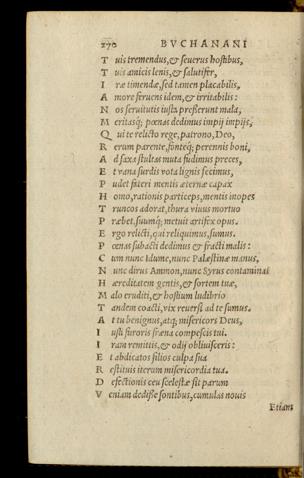 270 BVCHANANI
T uis tremendus, & seuerus hostibus,
T uis amicis lenis, & salutifer,
I ræ timendæ, sed tamen placabilis,
A more feruens idem, & irritabilis:
N os seruitutis iusta presserunt mala,
M eritasq́; pœnas dedimus impij impijs,
Q ui te relicto rege, patrono, Deo,
R erum parente, fonteq́; perenni boni,
A d saxa stultas muta fudimus preces,
E t vana surdis vota lignis fecimus,
P udet fateri mentis æternæ capax
H omo, rationis particeps, mentis inopes
T runcos adorat, thura viuus mortuo
P ræbet, suumq́; metuit artifex opus.
E rgo relicti, qui reliquimus, sumus.
P œnas subacti dedimus & fracti malis:
C um nunc Idume, nunc Palæstinæ manus,
N unc dirus Ammon, nunc Syrus contaminat
H æreditatem gentis, & sortem tuæ,
M alo eruditi, & hostium ludibrio
T andem coacti, vix reuersi ad te sumus.
A t tu benignus, atq́; misericors Deus,
I usti furoris fræna compescis tui.
I ram remittis, & odij obliuisceris:
E t abdicatos filios culpa sua
R estituis iterum misericordia tua.
D efectionis ceu scelestæ sit parum
V eniam dedisse sontibus, cumulas nouis
Etiam